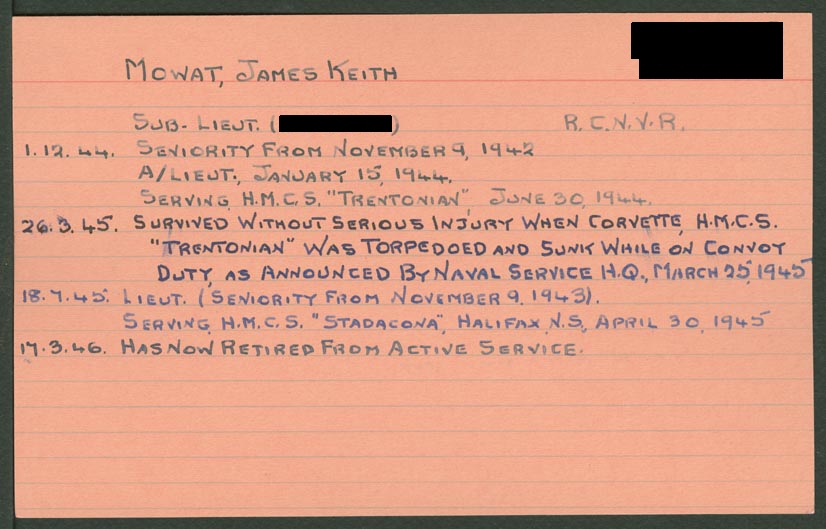 MOWAT, JAMES KEITH
SUB-LIEUT. ( ) R.C.N.V.R.
1.12.44. SENIORITY FROM NOVEMBER 9, 1942
A/LIEUT., JANUARY 15, 1944.
SERVING, H.M.C.S. "TRENTONIAN", JUNE 30, 1944.
26.3.45. SURVIVED WITHOUT SERIOUS INJURY WHEN CORVETTE, H.M.C.S.
"TRENTONIAN" WAS TORPEDOED AND SUNK WHILE ON CONVOY
DUTY, AS ANNOUNCED BY NAVAL SERVICE H.Q., MARCH 25, 1945
18.7.45. LIEUT. (SENIORITY FROM NOVEMBER 9, 1943).
SERVING, H.M.C.S. "STADACONA", HALIFAX, N.S., APRIL 30, 1945
17.3.46. HAS NOW RETIRED FROM ACTIVE SERVICE.